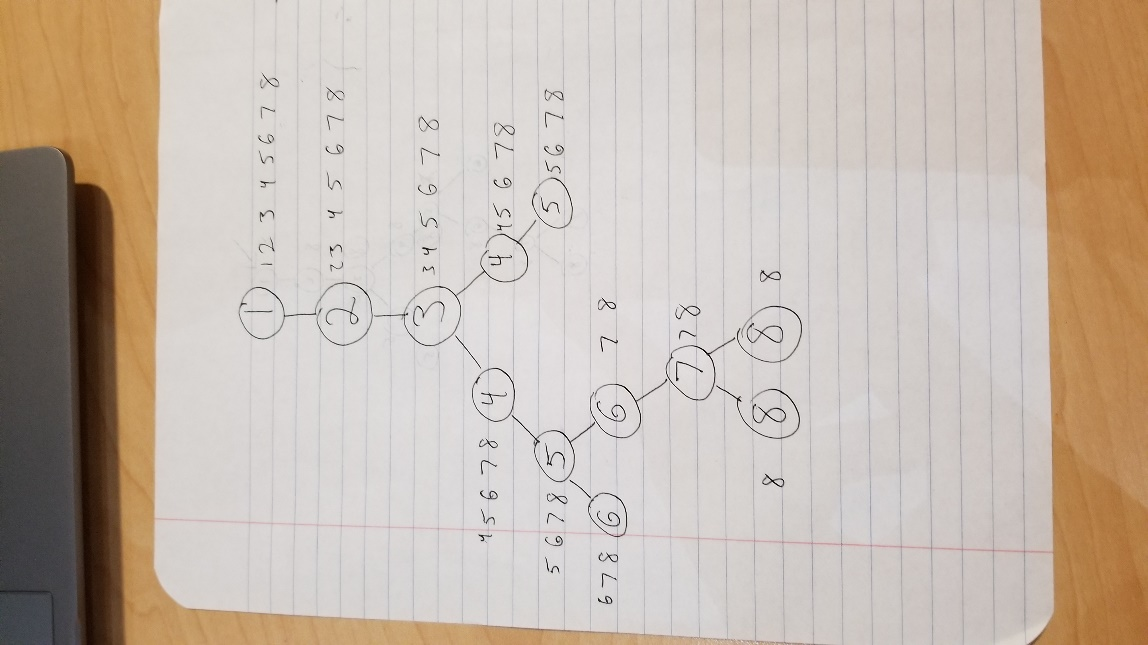 1 1 2 3 4 5 6 7 8
2 2 3 4 5 6 7 8
3 3 4 5 6 7 8
4 5 6 7 8 4 4 4 5 6 7 8
5 6 7 8 5 5 5 6 7 8
6 7 8 6 6 7 8
7 7 8
8 8 8 8